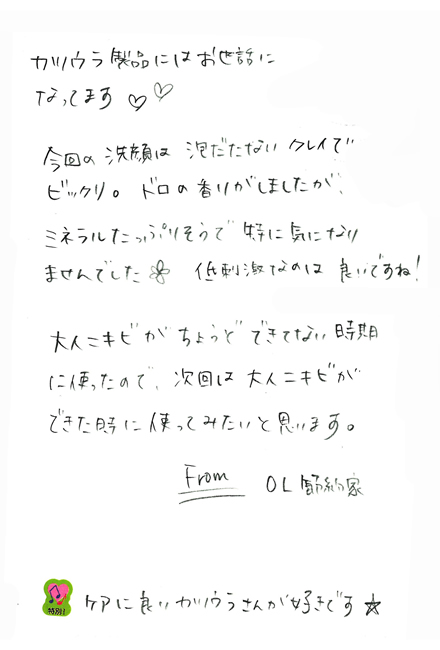 カツウラ製品にはお世話に
なってます♡♡
今回の洗顔は泡だたないクレイで
ビックリ。ドロの香りがしましたが、
ミネラルたっぷりそうで特に気になり
ませんでした 低刺激なのは良いですね!
大人ニキビがちょうどできてない時期
に使ったので、次回は大人ニキビが
できた時に使ってみたいと思います。
From OL節約家
特別!
ケアに良いカツウラさんが好きです☆